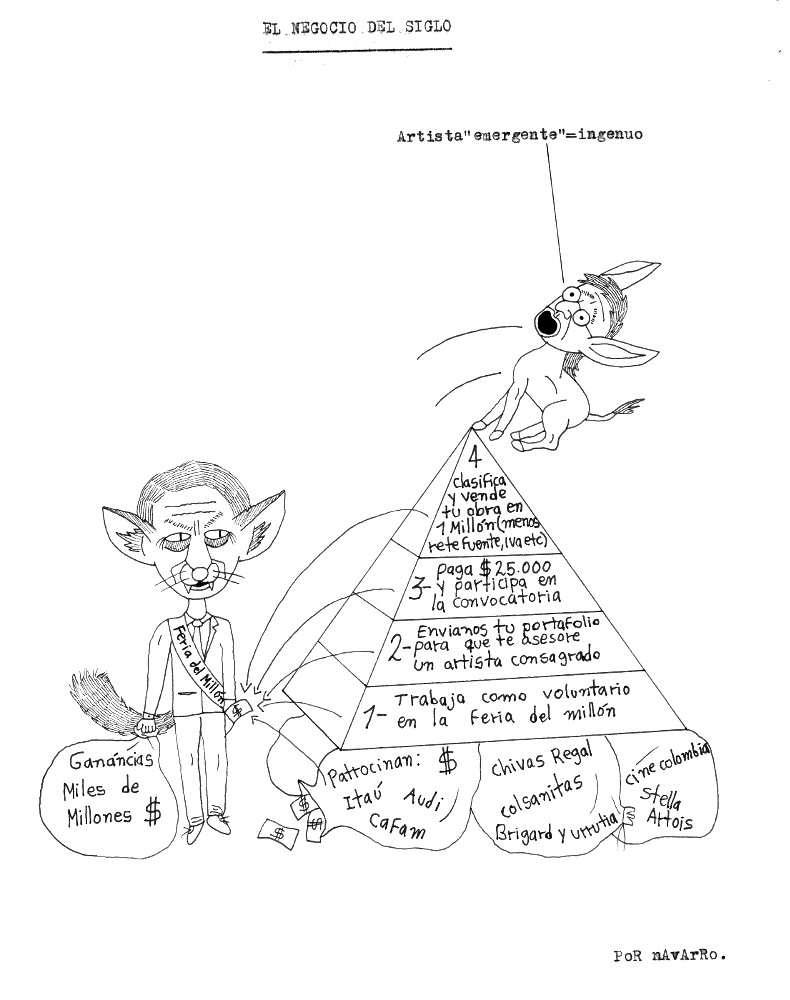 EL NEGOCIO DEL SIGLO
Artista"emergente"=ingenuo
4
clasifica
y vende
tu obra en
1 Millón (menos
rete fuente, iva etc)
3- paga $25.000
y participa en
la convocatoria
2- Envianos tu portafolio
para que te asesore
un artista consagrado
1- Trabaja como voluntario
en la Feria del millón
Feria del Millón
$
Ganáncias
Miles de
Millones $
Patrocinan: $
Itaú Audi
Cafam
$
$
$
chivas Regal
colsanitas
Brigard y urrutia
cine colombia
Stella
Artois
PoR nAvArRo.